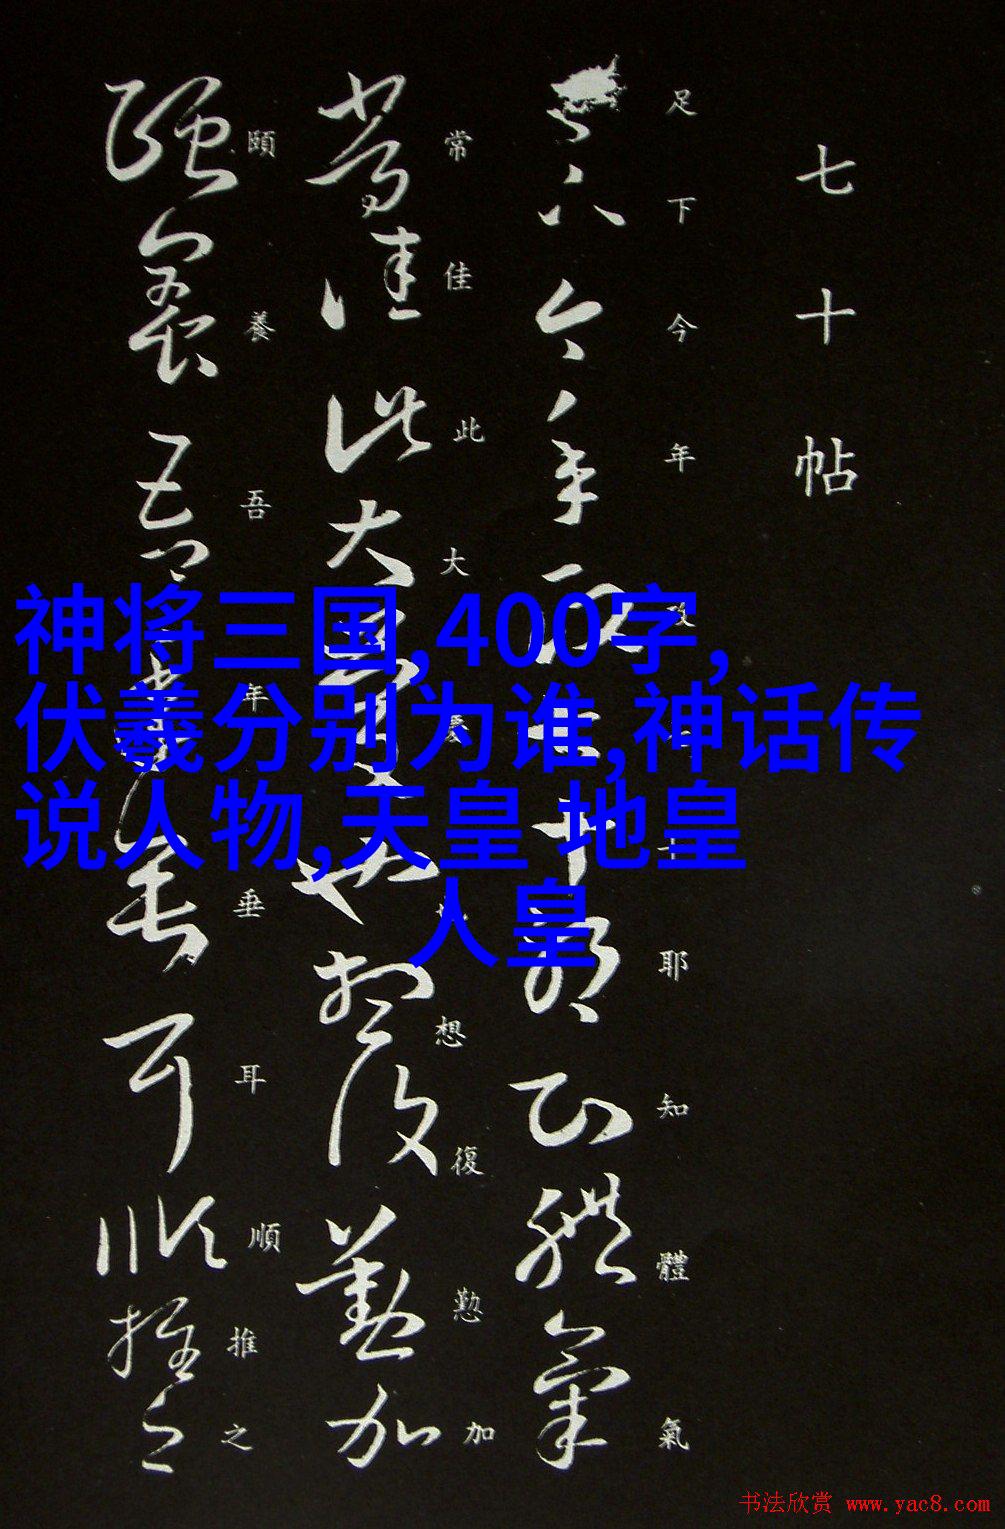 七十帖
足下今年政七十耶知體氣
常佳此大慶也想復懃加
頤養吾年垂耳順推之
神将三国,400字,
伏羲分别为谁,神话传
说人物,天皇 地皇
人皇
书法欣赏 www.yac8.com